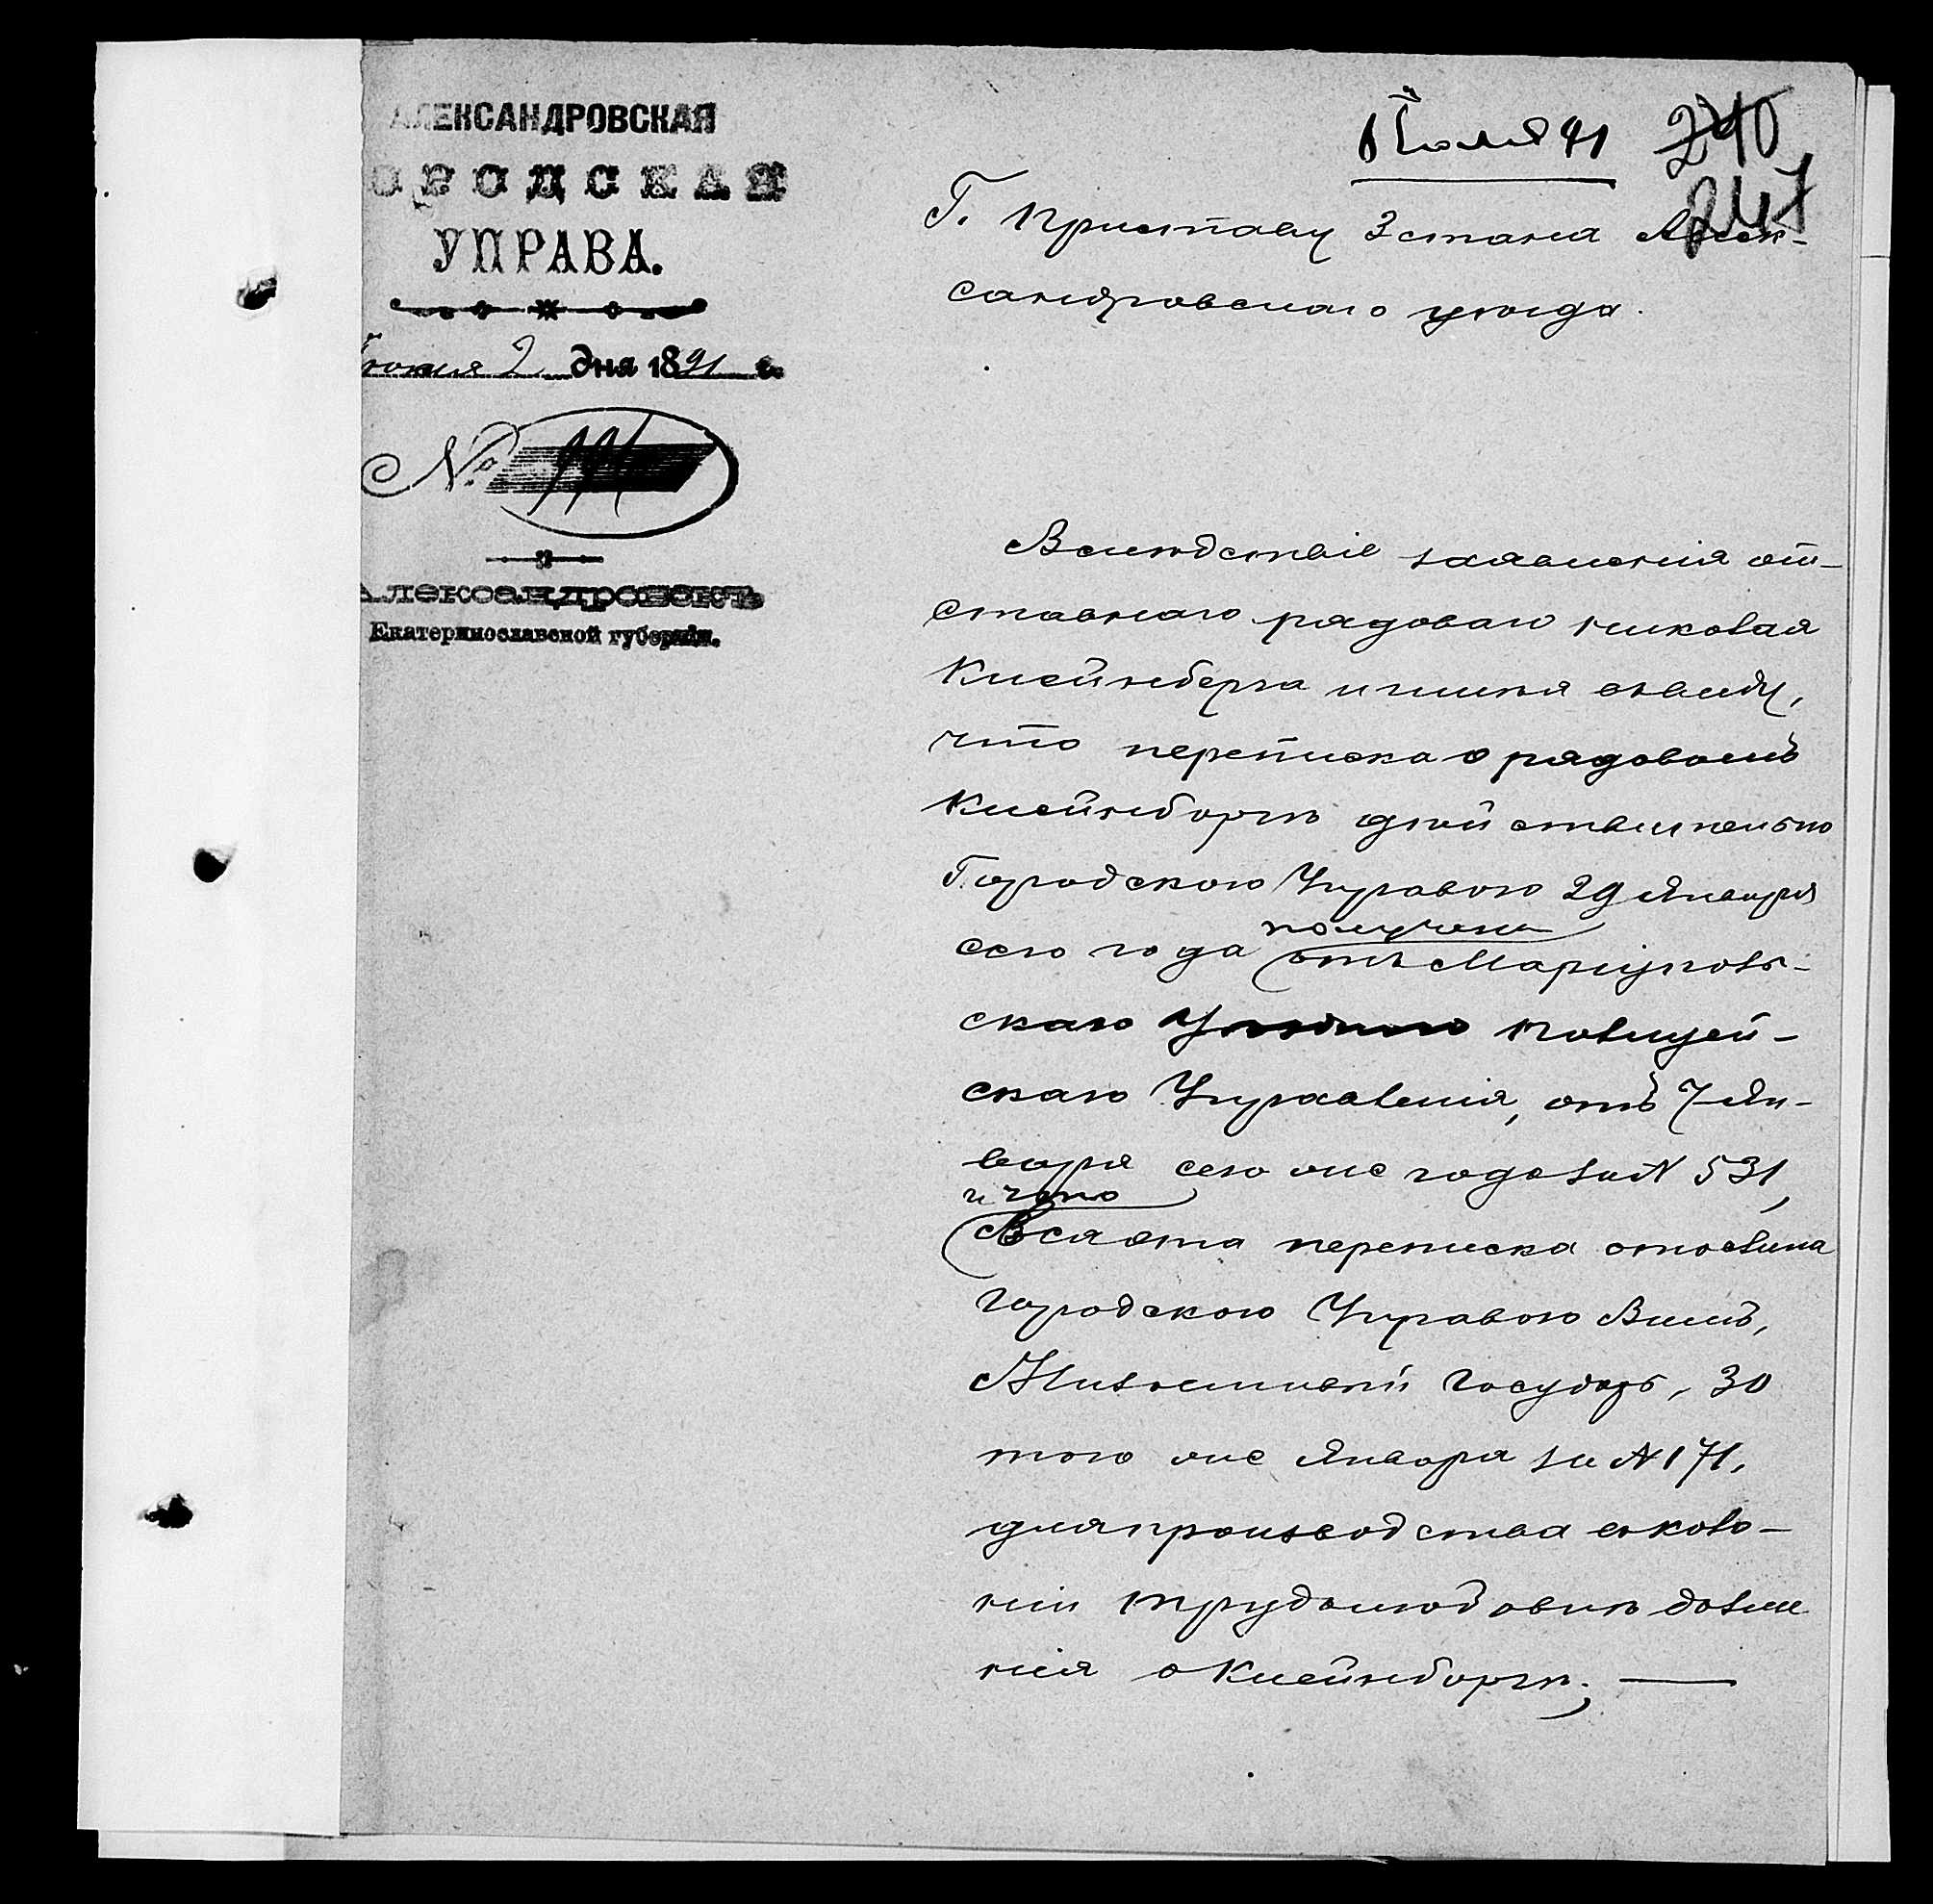 АЛЕКСАНДРОВСКАЯ
ОРОДСКАЯ
УПРАВА.
Июня 2 дня 1891 г.
№
Александровскъ
Екатеринославской губерніи.
91
240
247
Г. Приставу 3 стана Алек-
сандровскаго уѣзда.
Вслѣдствіе заявленія от-
ставнаго рядоваго Николая
Клейнберга и имѣя ввиду,
что переписка о рядовомъ
Клейнбергѣ дѣйствительно
Городскою Управою 29 Января
получена
сего года отъ Маріуполь-
скаго Уѣзднаго Полицей-
скаго Управленія, отъ 7 Ян-
варя сего же года за № 531,
и что
Вся эта переписка отослана
Городскою Управою Вамъ,
Милостивый Государь, 30
того же Января за № 171,
для производства въ коло-
ніи Трудолюбовкѣ дозна
нія о Клейнбергѣ;